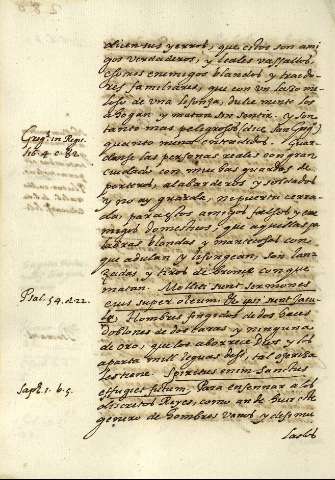 dicen sus yerros, que estos son ami
gos verdaderos, y leales vassallos
essos enemigos blandos y traedo
res familiares, que con un lazo me
loso de una lisonja, dulcemente los
ahogan y matan sin sentir. y son
tanto mas peligrosos (dice San Greg.)
quanto menos entendidos. Guar
danse las personas reales con gran
cuidado con muchas guardas de
porteros, alabarderos y soldados
y no ay guarda, ni puerta cerra
da, para ylos amigos falsos y ene
migos domesticos que aquellas pa
labras blandas y mantecosas con
que adulan y lisongean, son lan
zadas y tiros de bronce con que
matan. Molliti sunt sermones
eius super oleum. Et ipsi sunt jacu
la. Hombres fingidos de dos haces
doblones de dos caras y ninguna
de oro, que los aborrece Dios y los
aparta mill leguas de si, tal ojeriza
les tiene. Spiritus enim Sanctus
effugiet fictum. Para ensennar a los
discretos Reyes, como an de huir este
genero de hombres vanos y desimu
lados
Greg. in Regis.
lib. 4. c. 82.
Psal. 54. v. 22.
Sap. 1. v. 5.